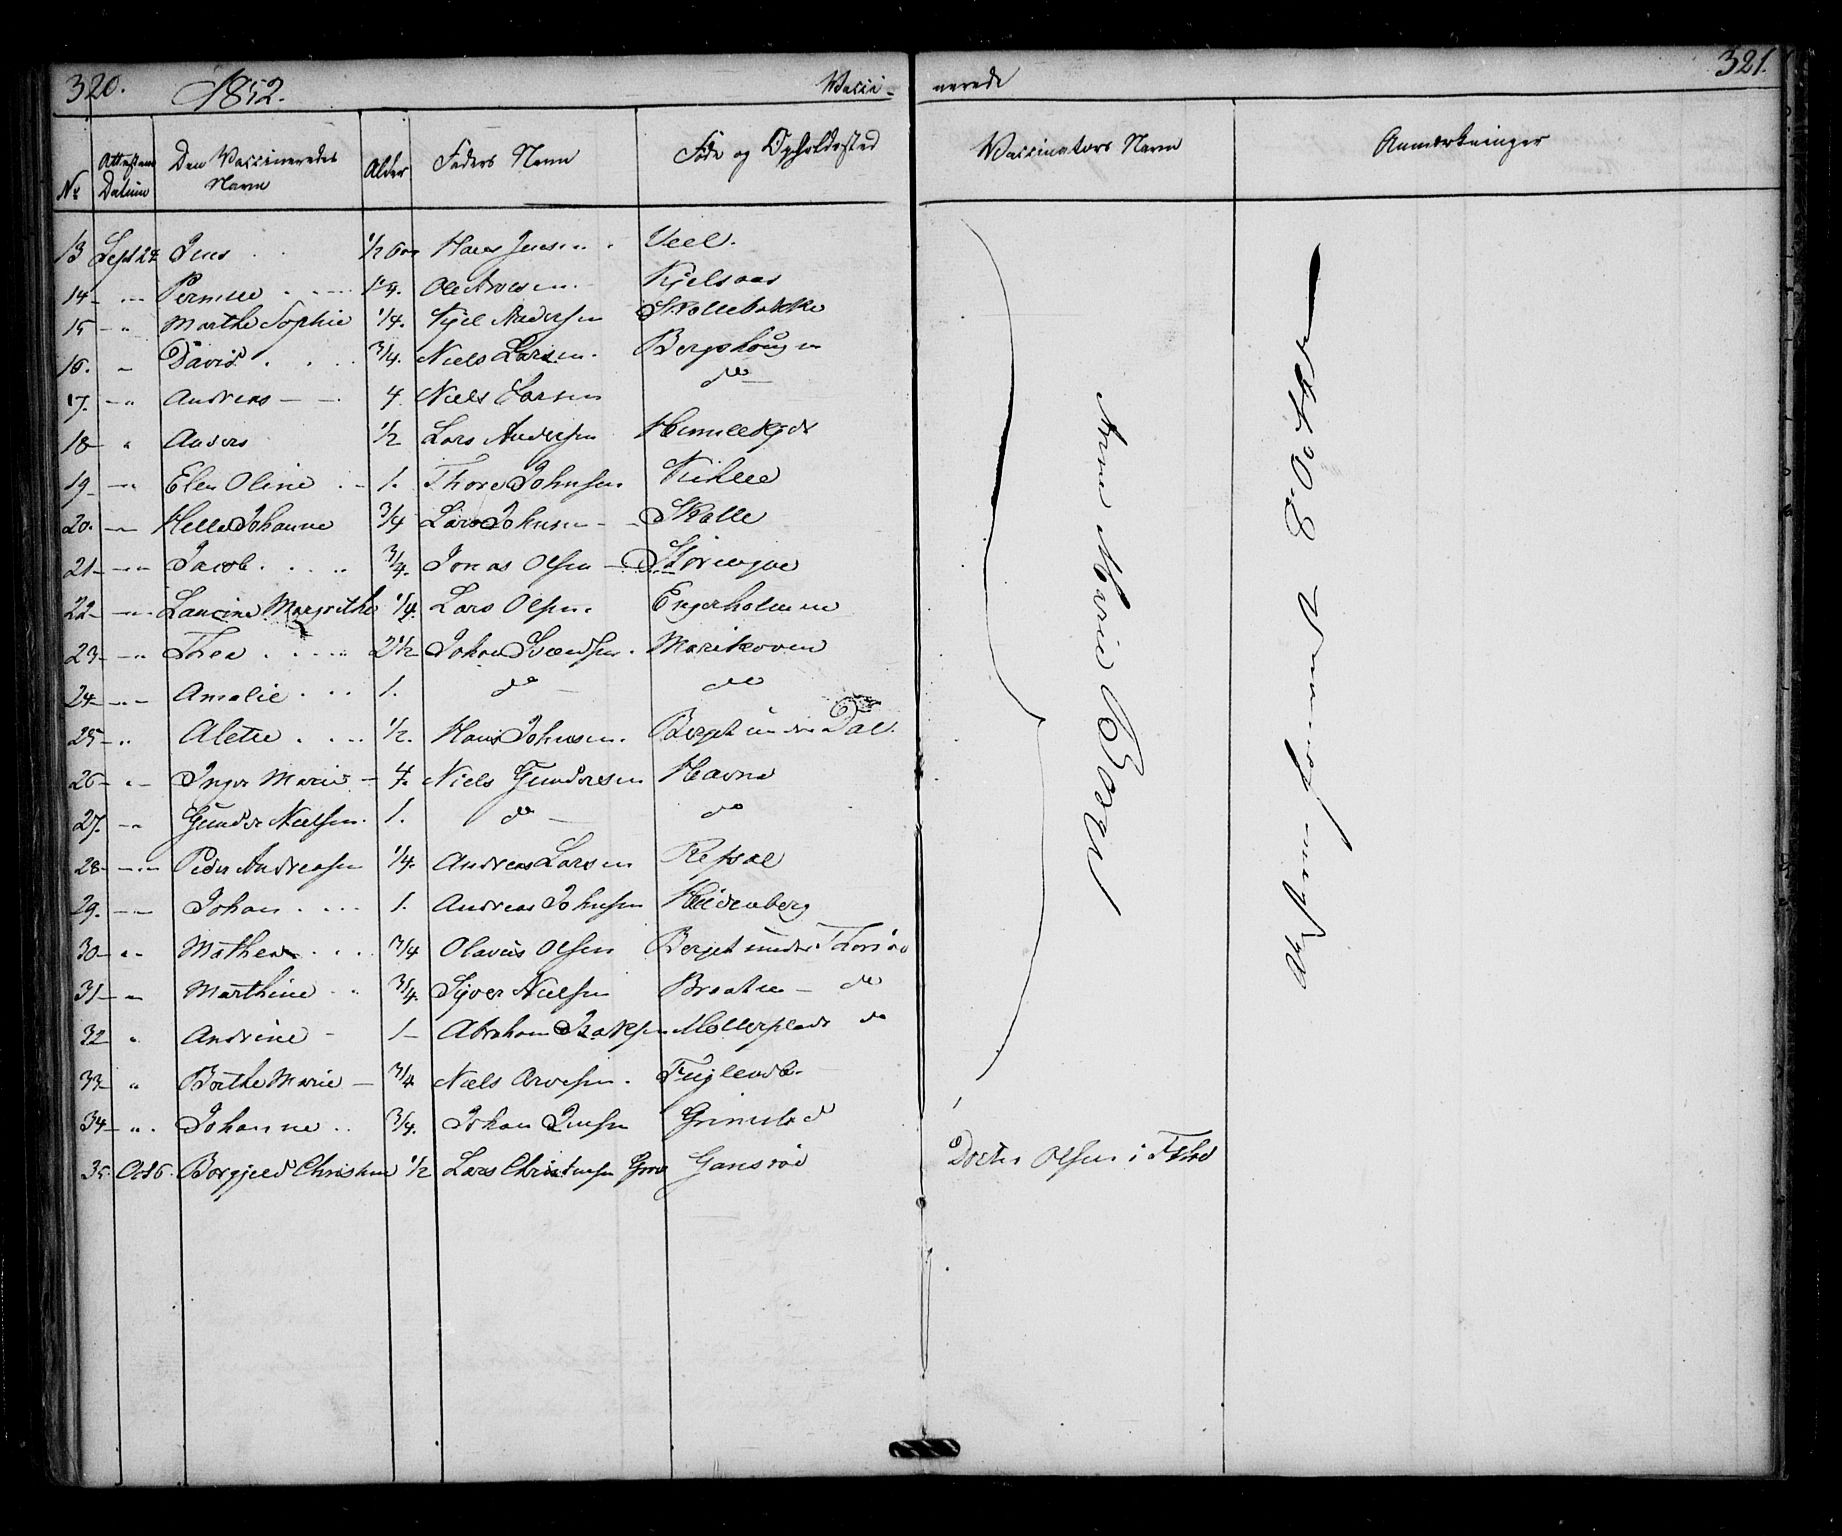 320. 1852. Vacci- nerede 321.
Nr Attestens Datum Den Vaccineredes Navn Alder Faders Navn Føde og Opholdssted Vaccinators Navn Anmærkninger
13 Sept 27 Jens . . 1/2 Hans Jensen . Veel.
14 - .. Pernille . . - 1/4. Ole Arvesen. Kjelsaas
15 - " Marthe Sophie 1/4. Kjel Andersen Skollebakke
16. - David . . . 3/4. Niels Larsen. Bergshougen
17. - " Andreas - - 4 Niels Larsen do
18 - " Anders 1/2 Lars Andersen
19 - " Elen Oline . - 1. Thore Johnsen
20. - Helle Johanne 3/4 Lars Johnsen - Skolle
21 - " Jacob . . . . 3/4. Jonas Olsen -
22 - " Laurine Margrethe 1/4. Lars Olsen. Engerholmen
23 - " Thea . . . . 2 1/2 Johan Svendsen . Marikoven
24 - " Amalie . . . 1. do - do
25 - " Alette . . . 1/2. Hans Johnsen. Berget under Dal.
26 - " Inger Marie - 4. Niels Gundersen Havna
27. - " Gunder Nielsen. 1. do - do
28 - " Peder Andreasen 1/4. Andreas Larsen Refsal
29. - Johan . . . . 1. Andreas Johnsen
30 - " Mathea . . . 3/4 Olavus Olsen Berget under
31 - " Marthine . . 3/4. Syver Nielsen Braaten - do
32 " Andrine - 1 - Abraham Isaksen Møllerplads do
33 - " Berthe Marie - 3/4 Niels Arvesen . Fuglevik.
34 - " . Johanne .. 3/4. Johan Jensen Grimstad
35. Oct 6. Borgjeld Christine 1/2 Lars Christensen Gansrød Doctor Olsen i
Anne Marie